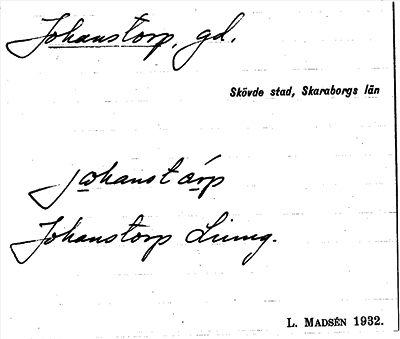 Johanstorp, gd.
Skövde stad, Skaraborgs län
jωhanstårp
Johanstorp Ljung.
L. MADSÉN 1932.